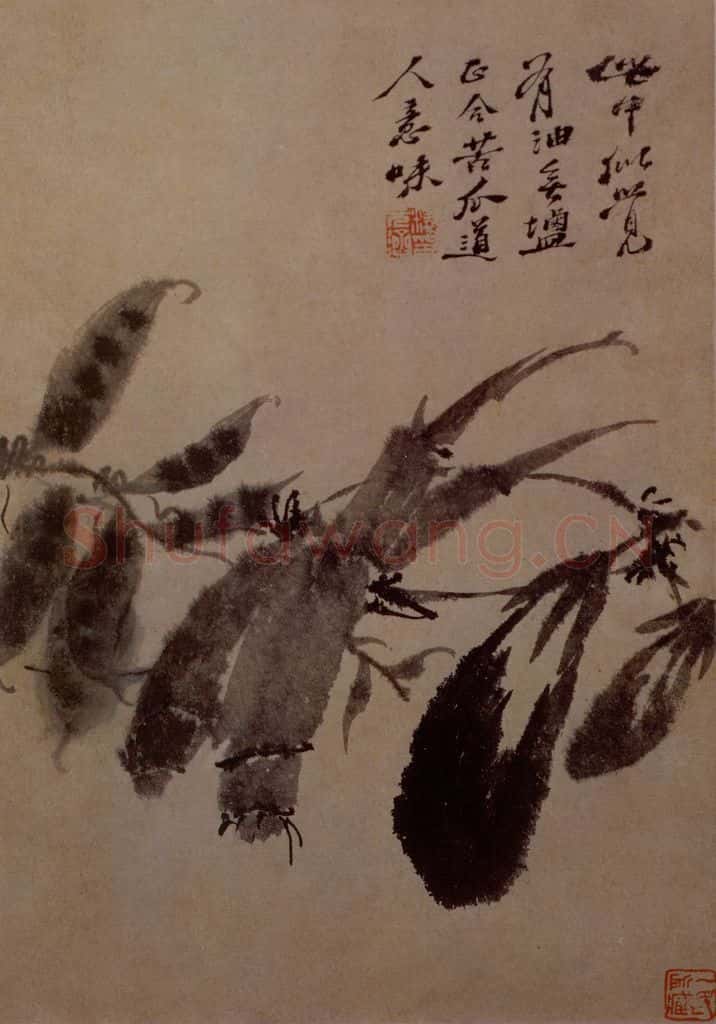 此中似覺
有油無塩
正合苦瓜道
人意味
Shufawang.CN